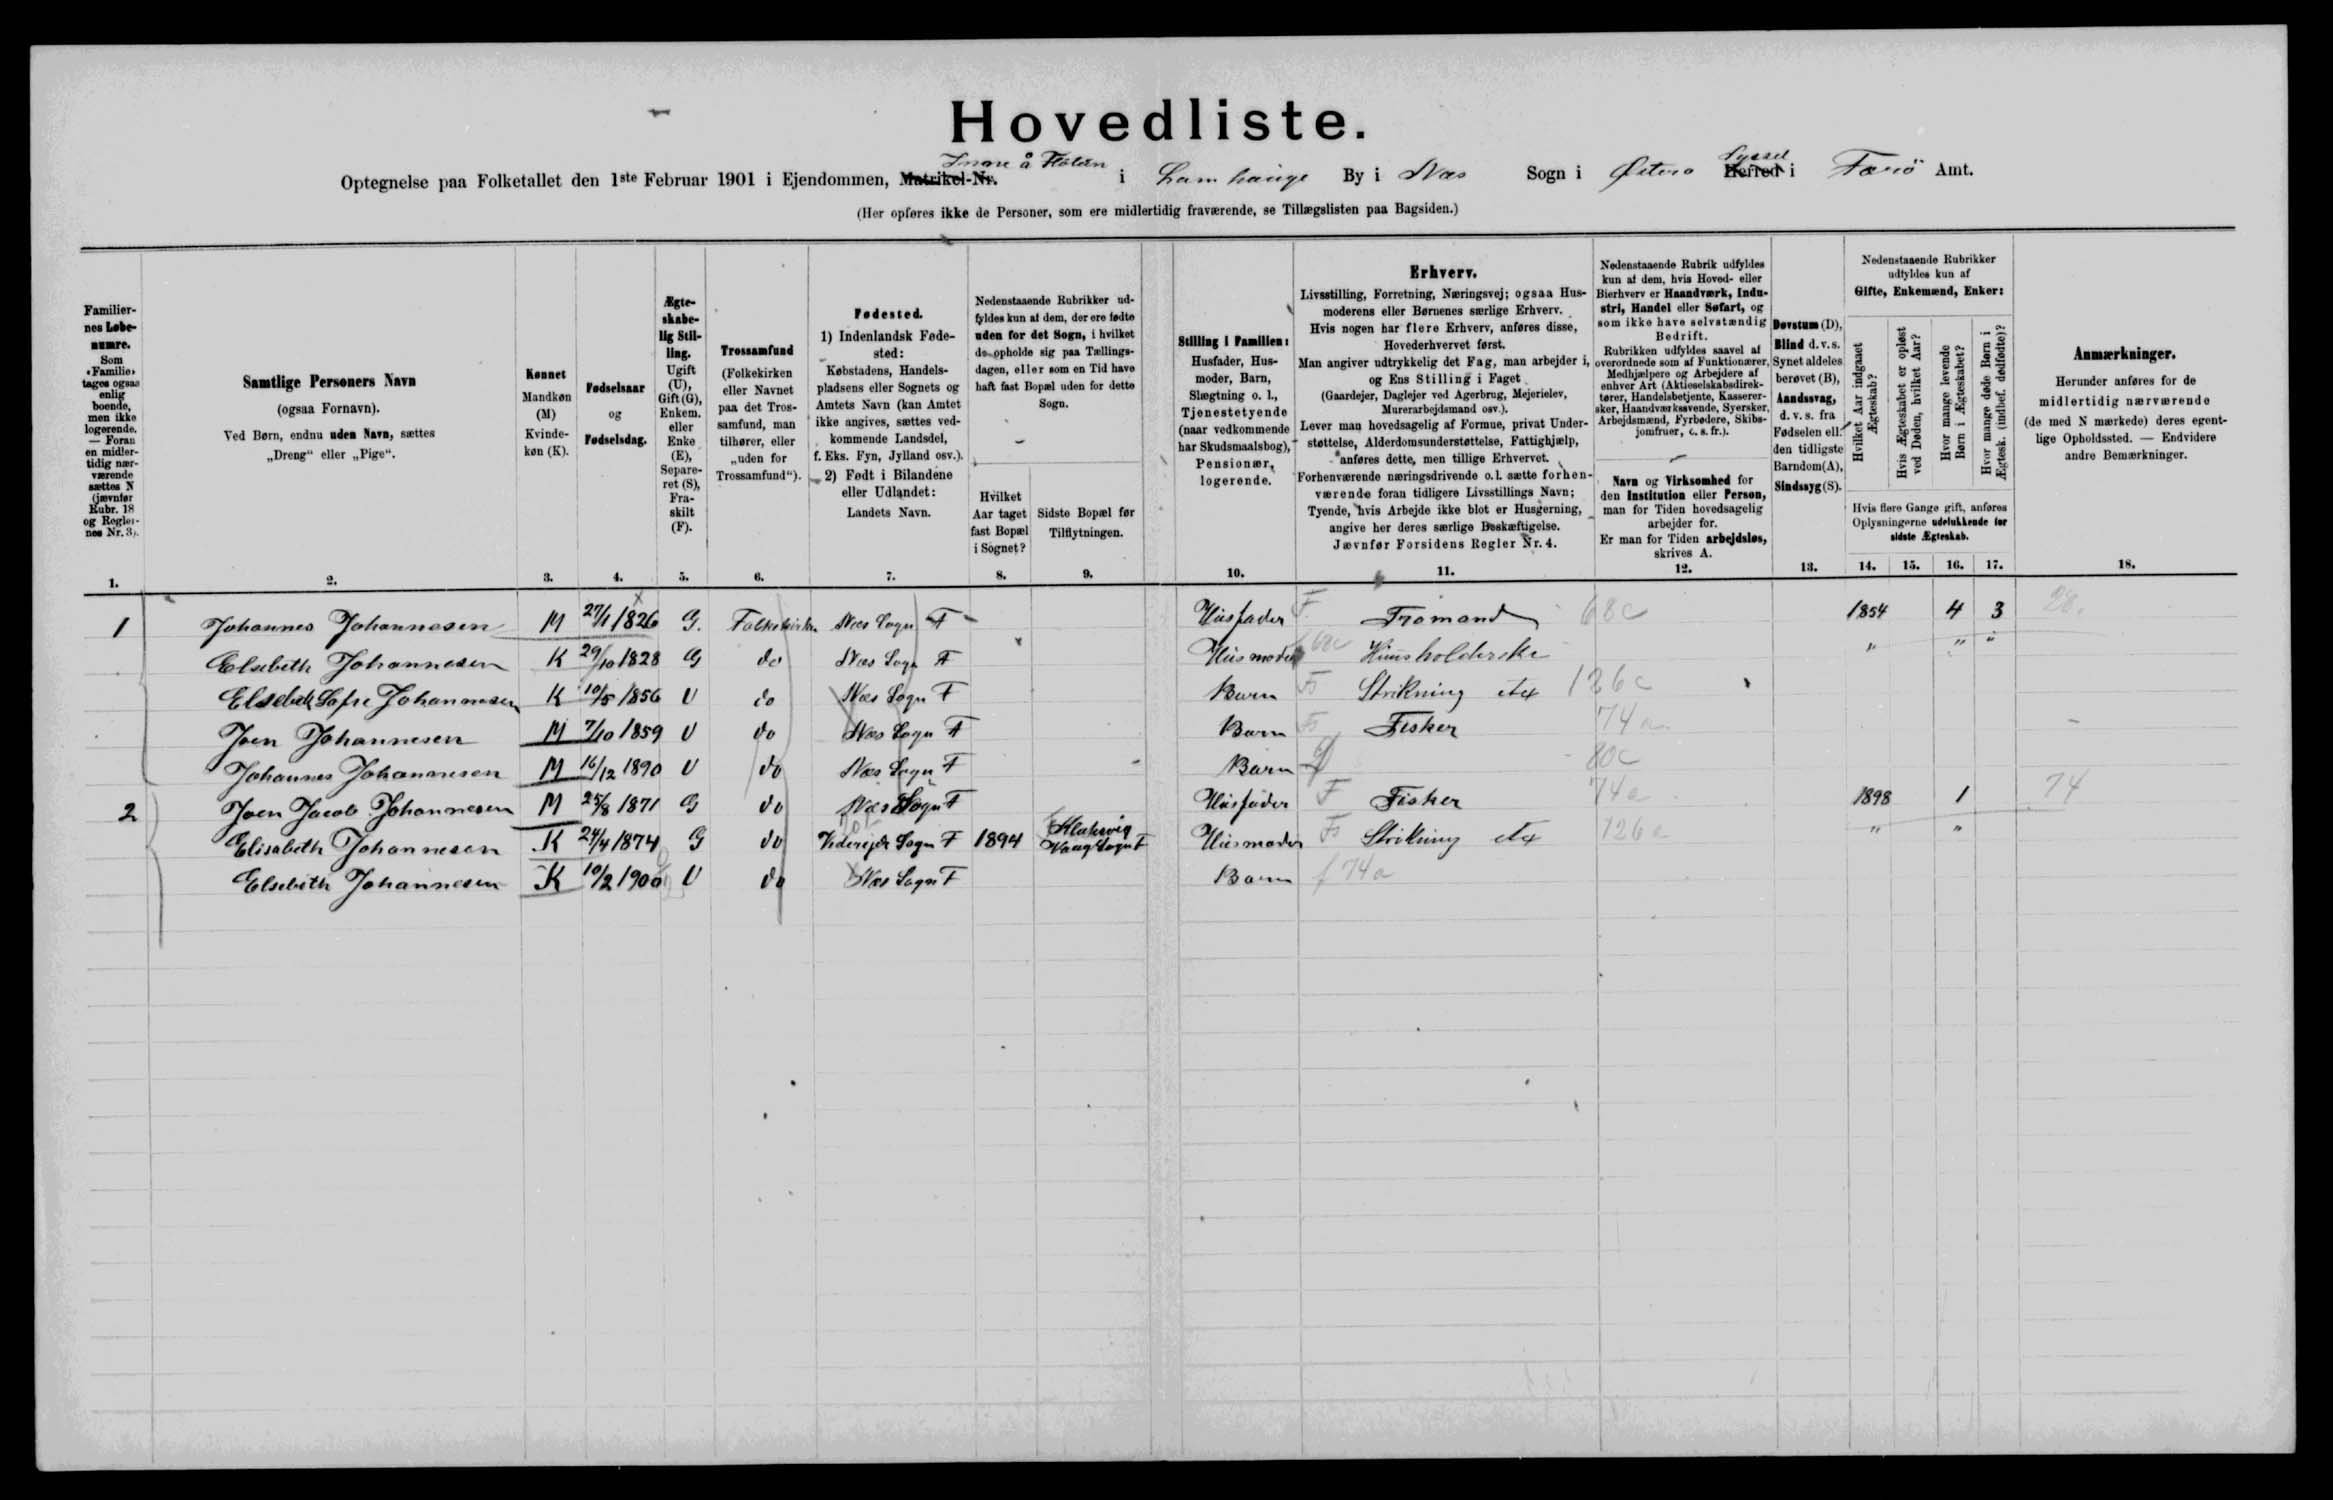 Hovedliste.
Optegnelse paa Folketallet den 1ste Februar 1901 i Ejendommen, Matrikel-Nr. Inare å Flötun i Lamhauge By i Næs Sogn i Østerø Herred Syssel i Færö Amt.
(Her opføres ikke de Personer, som ere midlertidig fraværende, se Tillægslisten paa Bagsiden.)
Familiernes Løbenumre.
Som «Familie» tages ogsaa enlig boende, men ikke logerende. — Foran en midlertidig nærværende sættes N (jævnfør Rubr. 18 og Reglernes Nr. 3).
Samtlige Personers Navn
(ogsaa Fornavn).
Ved Børn, endnu uden Navn, sættes
„Dreng“ eller „Pige“.
Kønnet
Mandkøn (M) Kvindekøn (K).
Fødselsaar
og
Fødselsdag.
Ægteskabelig Stilling.
Ugift (U), Gift (G), Enkem. eller Enke (E), Separeret (S), Fraskilt (F).
Trossamfund
(Folkekirken eller Navnet paa det Trossamfund, man tilhører, eller „uden for Trossamfund“).
Fødested.
1) Indenlandsk Fødested:
Købstadens, Handelspladsens eller Sognets og Amtets Navn (kan Amtet ikke angives, sættes vedkommende Landsdel, f. Eks. Fyn, Jylland osv.).
2) Født i Bilandene eller Udlandet:
Landets Navn.
Nedenstaaende Rubrikker udfyldes kun af dem, der ere fødte uden for det Sogn, i hvilket de opholde sig paa Tællingsdagen, eller som en Tid have haft fast Bopæl uden for dette Sogn.
Hvilket Aar taget fast Bopæl i Sognet?
Sidste Bopæl før Tilflytningen.
Stilling i Familien:
Husfader, Husmoder, Barn, Slægtning o. l., Tjenestetyende (naar vedkommende har Skudsmaalsbog), Pensionær, logerende.
Erhverv.
Livsstilling, Forretning, Næringsvej; ogsaa Husmoderens eller Børnenes særlige Erhverv.
Hvis nogen har flere Erhverv, anføres disse, Hovederhvervet først.
Man angiver udtrykkelig det Fag, man arbejder i, og Ens Stilling i Faget
(Gaardejer, Daglejer ved Agerbrug, Mejerielev, Murerarbejdsmand osv.).
Lever man hovedsagelig af Formue, privat Understøttelse, Alderdomsunderstøttelse, Fattighjælp, anføres dette, men tillige Erhvervet.
Forhenværende næringsdrivende o. l. sætte forhenværende foran tidligere Livsstillings Navn;
Tyende, hvis Arbejde ikke blot er Husgerning, angive her deres særlige Beskæftigelse.
Jævnfør Forsidens Regler Nr. 4.
Nedenstaaende Rubrik udfyldes kun af dem, hvis Hoved- eller Bierhverv er Haandværk, Industri, Handel eller Søfart, og som ikke have selvstændig Bedrift.
Rubrikken udfyldes saavel af overordnede som af Funktionærer, Medhjælpere og Arbejdere af enhver Art (Aktieselskabsdirektører, Handelsbetjente, Kasserersker, Haandværkssvende, Syersker, Arbejdsmænd, Fyrbødere, Skibsjomfruer, o. s. fr.).
Navn og Virksomhed for den Institution eller Person, man for Tiden hovedsagelig arbejder for.
Er man for Tiden arbejdsløs, skrives A.
Døvstum (D), Blind d. v. s. Synet aldeles berøvet (B), Aandssvag, d. v. s. fra Fødselen ell. den tidligste Barndom (A), Sindssyg (S).
Nedenstaaende Rubrikker udfyldes kun af
Gifte, Enkemænd, Enker:
Hvilket Aar indgaaet Ægteskab?
Hvis Ægteskabet er opløst ved Døden, hvilket Aar?
Hvor mange levende Børn i Ægteskabet?
Hvor mange døde Børn i Ægtesk. (indbef. dødfødte)?
Hvis flere Gange gift, anføres Oplysningerne udelukkende for sidste Ægteskab.
Anmærkninger.
Herunder anføres for de midlertidig nærværende (de med N mærkede) deres egentlige Opholdssted. — Endvidere andre Bemærkninger.
1. 2. 3. 4. 5. 6. 7. 8. 9. 10. 11. 12. 13. 14. 15. 16. 17. 18.
1 Johannes Johannesen M 27/1 1826 G. Folkekirken Næs Sogn F Husfader F Tromand 68c 1854 4 3 28.
Elsebeth Johannesen K 29/10 1828 G do Næs Sogn F Husmoder 68c Huusholderske " " "
Elsebeth Sofie Johannesen K 10/5 1856 U do Næs Sogn F Barn Fs Strikning etc 126c
Joen Johannesen M 7/10 1859 U do Næs Sogn F Barn Fs Fisker 74a
Johannes Johannesen M 16/12 1890 U do Næs Sogn F Barn 80c
2 Joen Jacob Johannesen M 25/8 1871 G do Næs Sogn F Husfader F Fisker 74a 1898 1 74
Elisabeth Johannesen K 24/4 1874 G do Viderejde Sogn F 1894 Klaksvig Vaag Sogn F Husmoder Fs Strikning etc 126c " "
Elsebeth Johannesen K 10/2 1900 U do Næs Sogn F Barn f 74a